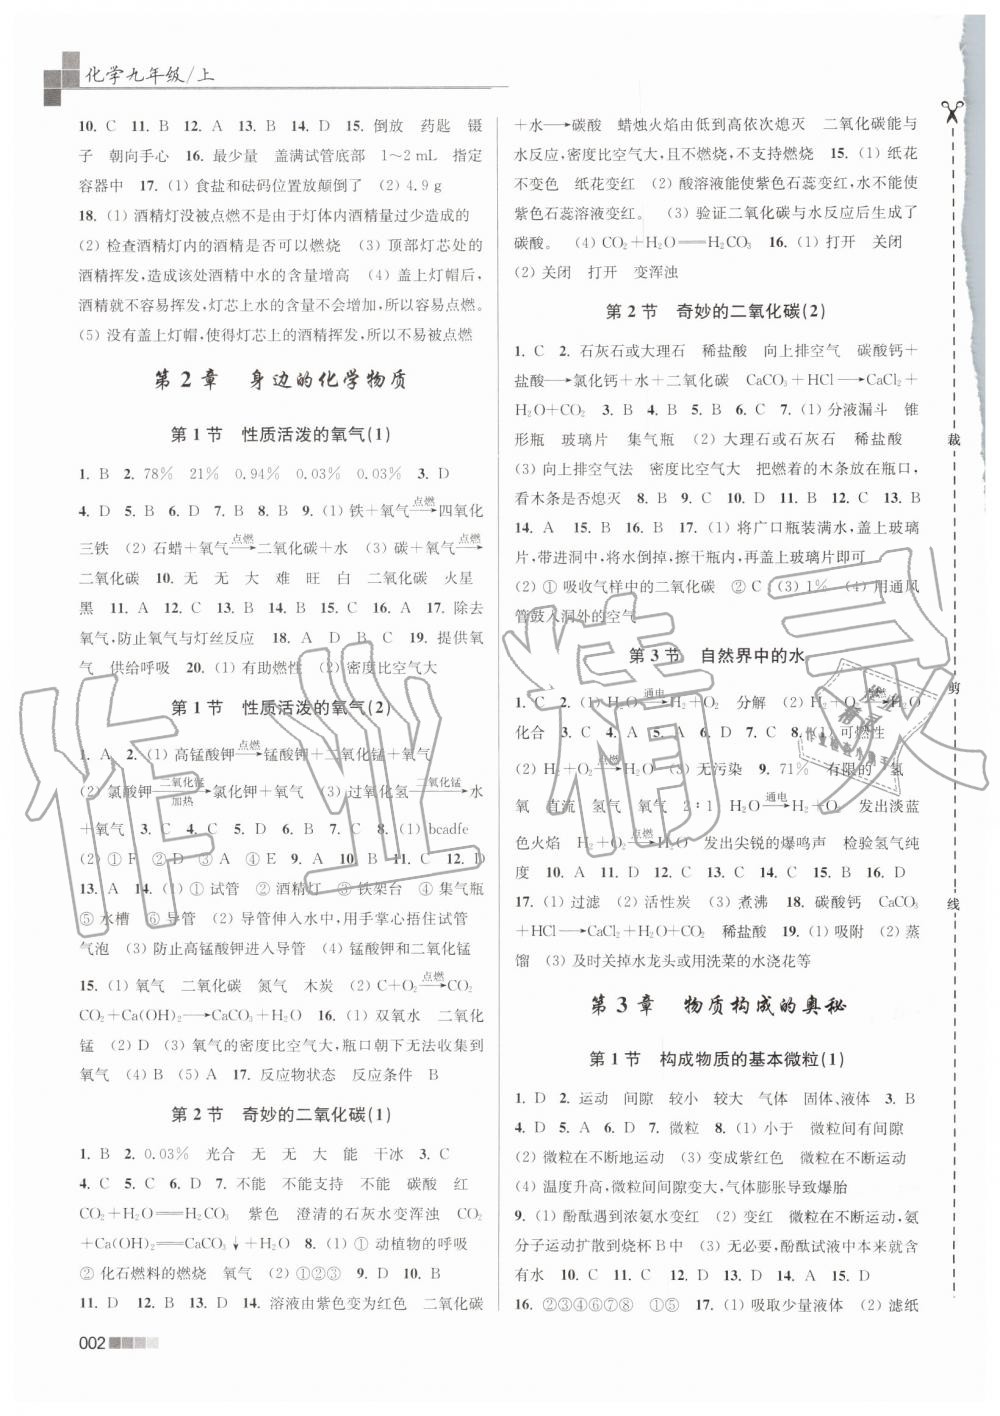 化学九年级/上
10. C 11. B 12. A 13. B 14. D 15. 倒放 药匙 镊
子 朝向手心 16. 最少量 盖满试管底部 1～2 mL 指定
容器中 17. (1) 食盐和砝码位置放颠倒了 (2) 4.9 g
18. (1) 酒精灯没被点燃不是由于灯体内酒精量过少造成的
(2) 检查酒精灯内的酒精是否可以燃烧 (3) 顶部灯芯处的
酒精挥发,造成该处酒精中水的含量增高 (4) 盖上灯帽后,
酒精就不容易挥发,灯芯上水的含量不会增加,所以容易点燃。
(5) 没有盖上灯帽,使得灯芯上的酒精挥发,所以不易点燃
第2章 身边的化学物质
第1节 性质活泼的氧气(1)
1. B 2. 78% 21% 0.94% 0.03% 0.03% 3. D
4. D 5. B 6. D 7. B 8. B 9. (1) 铁+氧气—点燃→四氧化
三铁 (2) 石蜡+氧气—点燃→二氧化碳+水 (3) 碳+氧气—点燃→
二氧化碳 10. 无 无 大 难 旺 白 二氧化碳 火星
黑 11. A 12. C 13. B 14. C 15. C 16. A 17. 除去
氧气,防止氧气与灯丝反应 18. A D B C 19. 提供氧
气 供给呼吸 20. (1) 有助燃性 (2) 密度比空气大
第1节 性质活泼的氧气(2)
1. A 2. (1) 高锰酸钾—点燃→锰酸钾+二氧化锰+氧气
(2) 氯酸钾—二氧化锰/加热→氯化钾+氧气 (3) 过氧化氢—二氧化锰→水
+氧气 3. C 4. C 5. B 6. C 7. C 8. (1) bcadfe
(2) ① F ② D ③ A ④ E 9. A 10. B 11. C 12. D
13. A 14. (1) ① 试管 ② 酒精灯 ③ 铁架台 ④ 集气瓶
⑤ 水槽 ⑥ 导管 (2) 导管伸入水中,用手掌心捂住试管
气泡 (3) 防止高锰酸钾进入导管 (4) 锰酸钾和二氧化锰
15. (1) 氧气 二氧化碳 氮气 木炭 (2) C+O₂—点燃→CO₂
CO₂+Ca(OH)₂⟶CaCO₃+H₂O 16. (1) 双氧水 二氧化
锰 (2) D (3) 氧气的密度比空气大,瓶口朝下无法收集到
氧气 (4) B (5) A 17. 反应物状态 反应条件 B
第2节 奇妙的二氧化碳(1)
1. B 2. 0.03% 光合 无 无 大 能 干冰 3. C
4. C 5. C 6. D 7. 不能 不能支持 不能 碳酸 红
CO₂+H₂O══H₂CO₃ 紫色 澄清的石灰水变浑浊 CO₂
+Ca(OH)₂══CaCO₃↓+H₂O 8. (1) ① 动植物的呼吸
② 化石燃料的燃烧 氧气 (2) ①②③ 9. D 10. B
11. D 12. B 13. D 14. 溶液由紫色变为红色 二氧化碳
002
+水⟶碳酸 蜡烛火焰由低到高依次熄灭 二氧化碳能与
水反应,密度比空气大,且不燃烧,不支持燃烧 15. (1) 纸花
不变色 纸花变红 (2) 酸溶液能使紫色石蕊变红,水不能使
紫色石蕊溶液变红。 (3) 验证二氧化碳与水反应后生成了
碳酸。 (4) CO₂+H₂O══H₂CO₃ 16. (1) 打开 关闭
(2) 关闭 打开 变浑浊
第2节 奇妙的二氧化碳(2)
1. C 2. 石灰石或大理石 稀盐酸 向上排空气 碳酸钙+
盐酸⟶氯化钙+水+二氧化碳 CaCO₃+HCl⟶CaCl₂+
H₂O+CO₂ 3. B 4. B 5. B 6. C 7. (1) 分液漏斗 锥
形瓶 玻璃片 集气瓶 (2) 大理石或石灰石 稀盐酸
(3) 向上排空气法 密度比空气大 把燃着的木条放在瓶口,
看木条是否熄灭 8. B 9. C 10. D 11. B 12. C 13. B
14. A 15. B 16. B 17. (1) 将广口瓶装满水,盖上玻璃
片,带进洞中,将水倒掉,擦干瓶内,再盖上玻璃片即可
(2) ① 吸收气样中的二氧化碳 ② C (3) 1% (4) 用通风
管鼓入洞外的空气
第3节 自然界中的水
1. C 2. (1) H₂O—通电→H₂+O₂ 分解 (2) H₂+O₂—点燃→H₂O
化合 3. C 4. A 5. A 6. D 7. C 8. (1) 可燃性
(2) H₂+O₂—点燃→H₂O (3) 无污染 9. 71% 有限的 氢
氧 直流 氢气 氧气 2∶1 H₂O—通电→H₂+O₂ 发出淡蓝
色火焰 H₂+O₂—点燃→H₂O 发出尖锐的爆鸣声 检验氢气纯
度 10. A 11. C 12. D 13. B 14. D 15. B 16. D
17. (1) 过滤 (2) 活性炭 (3) 煮沸 18. 碳酸钙 CaCO₃
+HCl⟶CaCl₂+H₂O+CO₂ 稀盐酸 19. (1) 吸附 (2) 蒸
馏 (3) 及时关掉水龙头或用洗菜的水浇花等
第3章 物质构成的奥秘
第1节 构成物质的基本微粒(1)
1. D 2. 运动 间隙 较小 较大 气体 固体、液体 3. B
4. D 5. A 6. D 7. 微粒 8. (1) 小于 微粒间有间隙
(2) 微粒在不断地运动 (3) 变成紫红色 微粒在不断运动
(4) 温度升高,微粒间间隙变大,气体膨胀导致爆胎
9. (1) 酚酞遇到浓氨水变红 (2) 变红 微粒在不断运动,氨
分子运动扩散到烧杯B中 (3) 无必要,酚酞试液中本来就含
有水 10. C 11. C 12. D 13. C 14. A 15. D
16. ②③④⑥⑦⑧ ①⑤ 17. (1) 吸取少量液体 (2) 滤纸
裁
剪
线
作业精灵